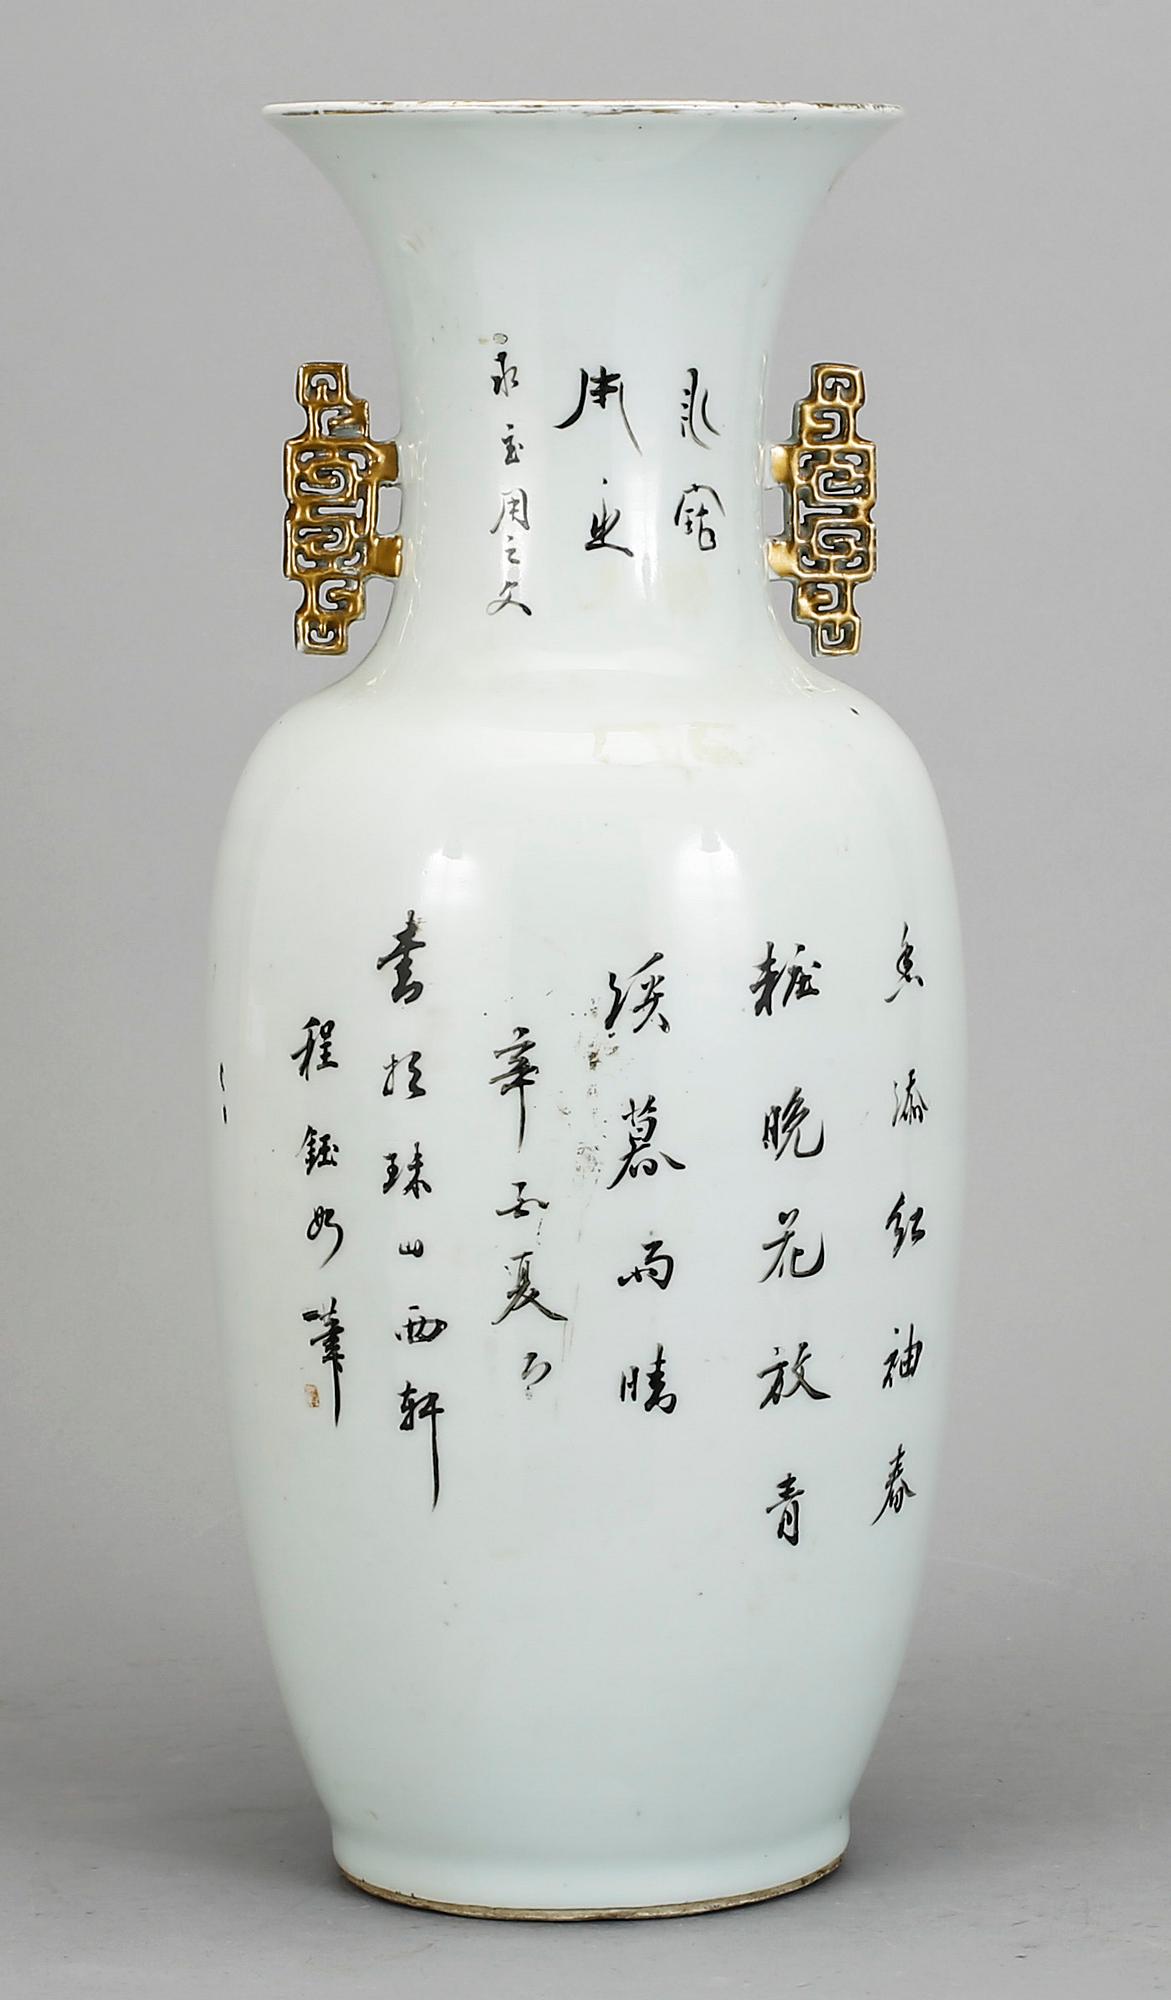 永寶
用之
永宝用之文
香添紅袖春
粧晚花放青
溪暮雨晴
辛夏月
書於珠山西軒
程鈺如筆